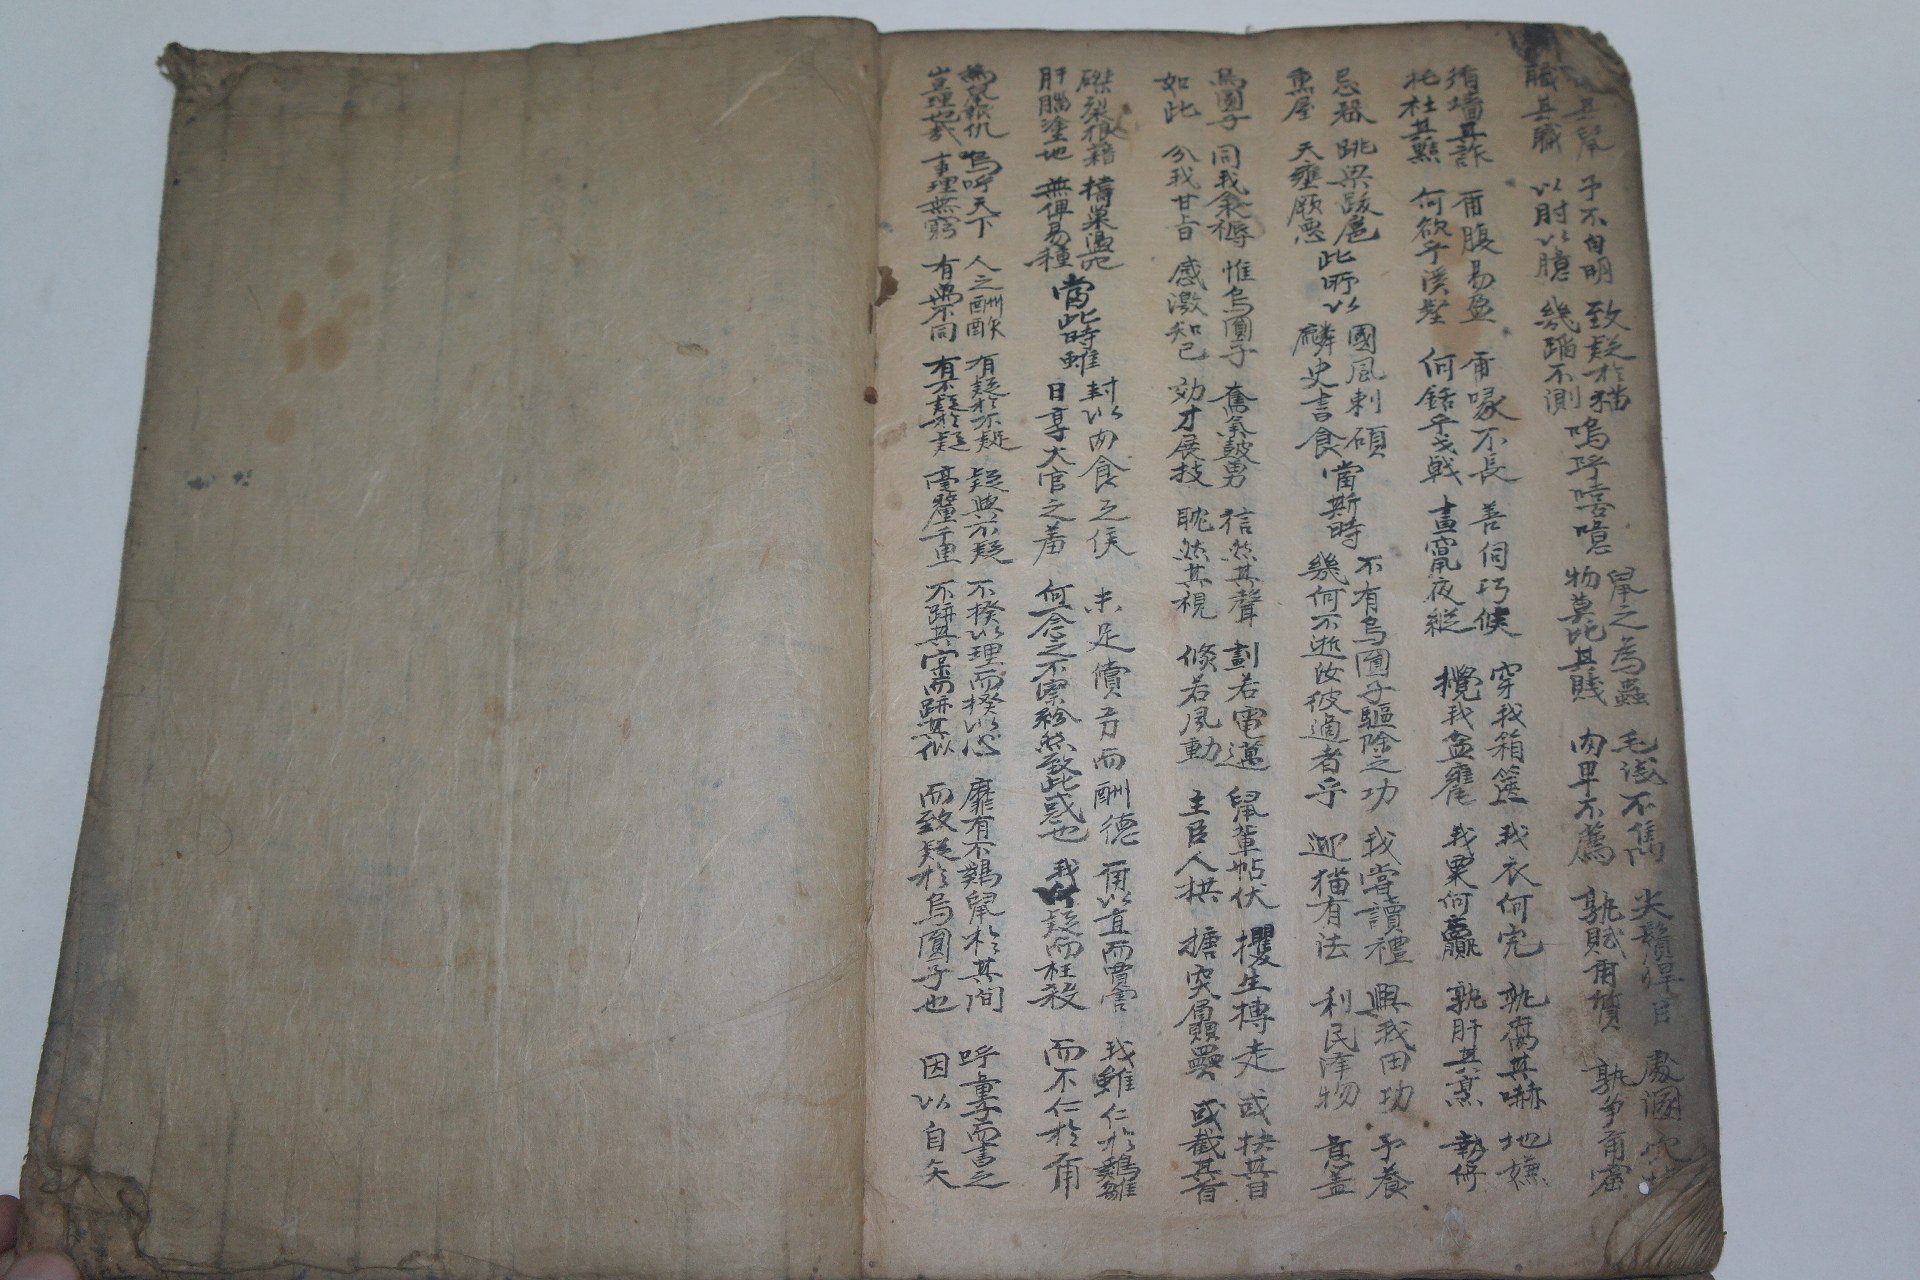 其 職其職 予不自明 以肘以臆 致疑於猫 幾蹈不測 嗚呼噫噫 鼠之為蟲 物莫比其賤 毛淺不儁 肉卑不薦 尖鬚 目 孰賦爾墳 處溷穴 孰爭爾窟
循墻其詐 托社其黠 爾腹易盈 何欲乎溪壑 爾喙不長 何銛乎戈戟 善伺巧候 晝竄夜縱 穿我箱篋 攪我盆甕 我衣何完 我粟何贏 孰腐其嚇 孰肝其烹 地嫌 勢倚
忌器 熏屋 跳梁跋扈 天壅願惡 此所以 國風刺碩 麟史書食 當斯時 不有烏圓子驅除之功 幾何不逝汝彼適者乎 我嘗讀禮 迎猫有法 興我田功 利民澤物 予養 意盖
烏圓子 如此 同我衾褥 分我甘旨 惟烏圓子 感激知己 奮氣鼓勇 効才展技 狺然其聲 眈然其視 劃若電邁 倏若風動 鼠輩帖伏 主臣人拱 攫生搏走 搪突屭贔 或抉其目 或截其首
磔裂狼藉 肝腦塗地 擣巢盪穴 無俾易種 當此時雖 封以肉食之侯 日享大官之羞 未足償功而酬德 何一念之不察紛然致此惑也 爾以直而買害 我何疑而枉殺 我雖仁於鷄雛 而不仁於爾
為鼠報仇 豈理也哉 嗚呼天下 事理無窮 人之酬酢 有萬不同 有疑於不疑 有不疑於疑 疑與不疑 毫釐千里 不揆以理而揆以心 不跡其實而跡其似 靡有不鷄鼠於其間 而致疑於烏圓子也 呼童子而書之 因以自矢